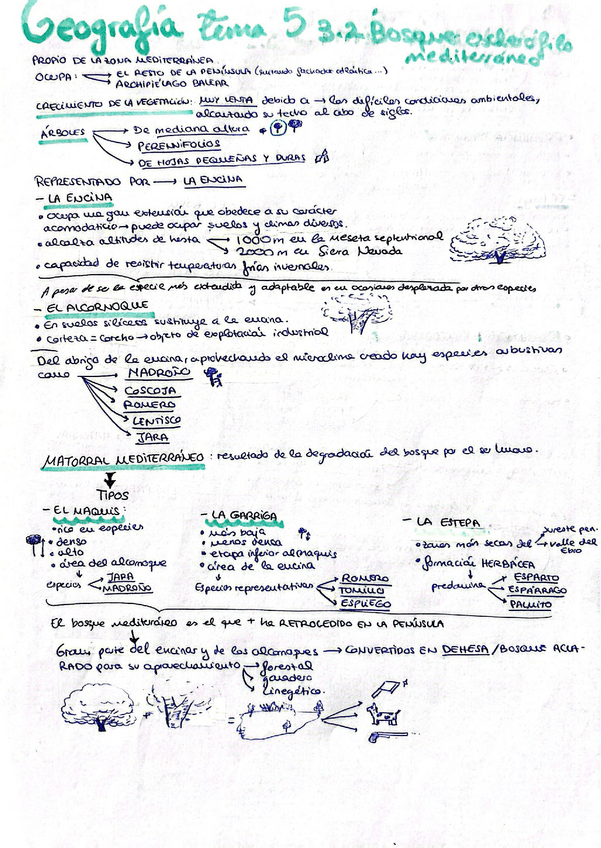 Geografía tema 5 3.2 Bosque esclerófilo
mediterráneo
PROPIO DE LA ZONA MEDITERRÁNEA.
OCUPA: EL RESTO DE LA PENÍNSULA (quitando fachada atlántica...)
ARCHIPIÉLAGO BALEAR
CRECIMIENTO DE LA VEGETACIÓN: MUY LENTA debido a → las difíciles condiciones ambientales,
alcanzando su techo al cabo de siglos.
ÁRBOLES De mediana altura
PERENNIFOLIOS
DE HOJAS PEQUEÑAS Y DURAS
REPRESENTADO POR → LA ENCINA
- LA ENCINA
• Ocupa una gran extensión que obedece a su carácter
acomodaticio → puede ocupar suelos y climas diversos.
• alcalza altitudes de hasta 1000 m en la meseta septentrional
2000 m en Sierra Nevada
• capacidad de resistir temperaturas frías invernales.
A pesar de ser la especie más extendida y adaptable es en ocasiones desplazada por otras especies
- EL ALCORNOQUE
• En suelos silíceos sustituye a la encina.
• corteza = corcho → objeto de explotación industrial
Del abrigo de la encina, aprovechando el microclima creado hay especies arbustivas
como MADROÑO
COSCOJA
ROMERO
LENTISCO
JARA
MATORRAL MEDITERRÁNEO: resultado de la degradación del bosque por el ser humano.
TIPOS
- EL MAQUIS:
• rico en especies
• denso
• alto
• área del alcornoque
especies JARA
MADROÑO
- LA GARRIGA
• más baja
• menos densa
• etapa inferior al maquis
• área de la encina
Especies representativas ROMERO
TOMILLO
ESPLIEGO
- LA ESTEPA
• zonas más secas del sureste pen.
valle del
Ebro
• formación HERBÁCEA
predomina ESPARTO
ESPÁRRAGO
PALMITO
El bosque mediterráneo es el que + ha RETROCEDIDO EN LA PENÍNSULA
Gran parte del encinar y de los alcornoques → CONVERTIDOS EN DEHESA / BOSQUE ACLA-
RADO para su aprovechamiento forestal
ganadero
cinegético.
+ =